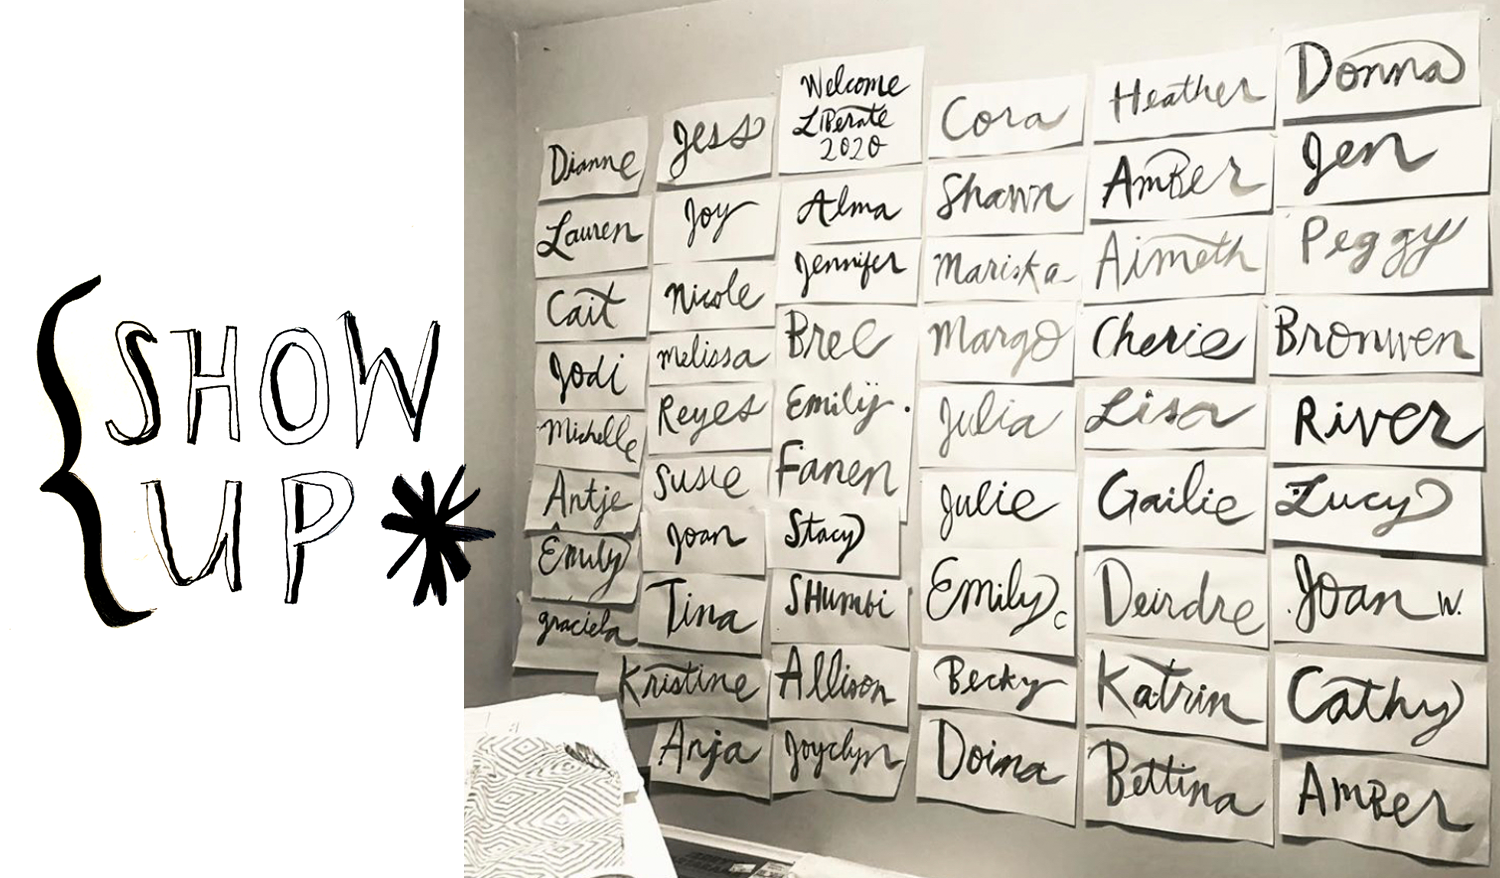 SHOW
UP*
Dianne
Lauren
Cait
Jodi
Michelle
Antje
Emily
graciela
Jess
Joy
Nicole
Melissa
Reyes
Susie
Joan
Tina
Kristine
Anja
Welcome
LiBerate
2020
Alma
Jennifer
Bree
Emily.
Fanen
Stacy
SHumbi
Allison
Joyclyn
Cora
Shawn
Mariska
Margo
Julia
Julie
Emily C
Becky
Doina
Heather
AmBer
Aimeth
Cherie
Lisa
Gailie
Deirdre
Katrin
Bettina
Donna
Jen
Peggy
Bronwen
River
Lucy
Joan W.
Cathy
AmBer